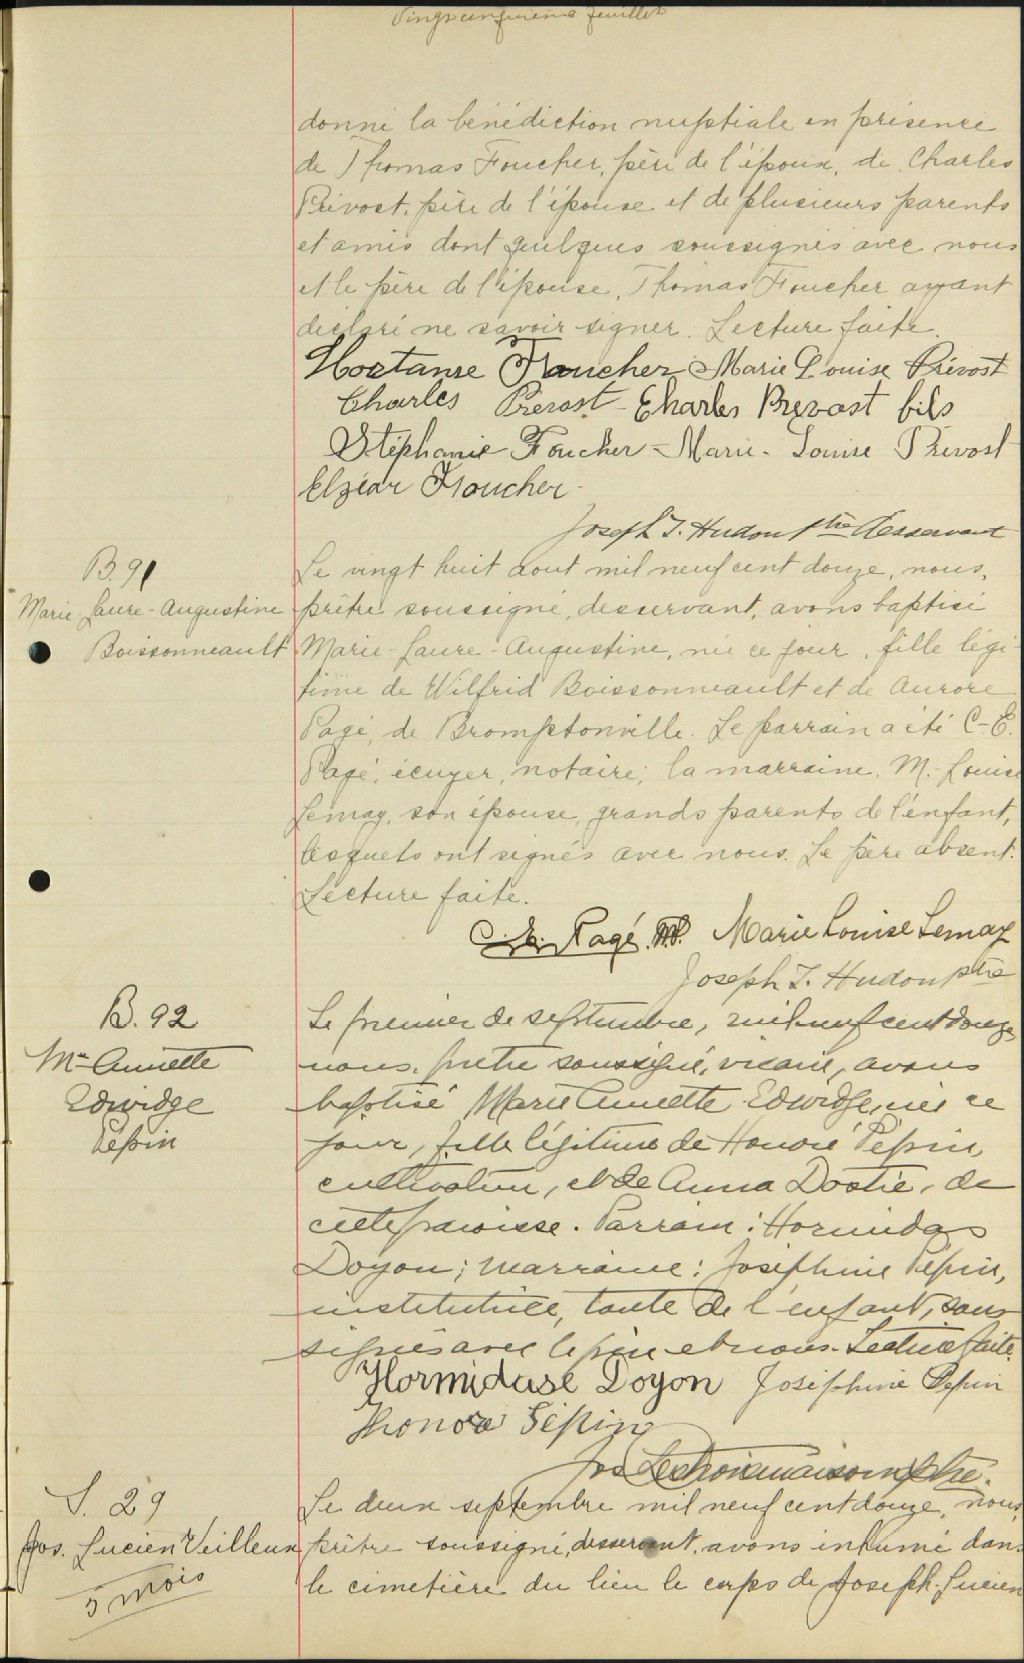 Vingtcinquième feuillet
donné la bénédiction nuptiale en présence
de Thomas Foucher, père de l'époux, de Charles
Prévost, père de l'épouse et de plusieurs parents
et amis dont quelques soussignés avec nous
et le père de l'épouse, Thomas Foucher ayant
déclaré ne savoir signer. Lecture faite.
Hortanse Foucher Marie Louise Prévost
Charles Prévost - Charles Prévost fils
Stéphanie Foucher - Marie-Louise Prévost
Elzéar Foucher -
Joseph I. Hudon ptre desservant
B. 91
Marie-Laure-Augustine
Boissonneault
Le vingt huit aout mil neuf cent douze, nous,
prêtre soussigné, desservant, avons baptisé
Marie-Laure-Augustine, née ce jour, fille légi-
time de Wilfrid Boissonneault et de Aurore
Pagé, de Bromptonville. Le parrain a été C-E.
Pagé, écuyer, notaire; la marraine, M.-Louise
Lemay, son épouse, grands parents de l'enfant,
lesquels ont signés avec nous. Le père absent.
Lecture faite.
C. E. Pagé. N.P. Marie Louise Lemay
Joseph I. Hudon ptre
B. 92
Mie Annette
Edwidge
Pépin
Le premier de septembre, mil neuf cent douze,
nous, prêtre soussigné, vicaire, avons
baptisé Marie Annette Edwidge, née ce
jour, fille légitime de Honoré Pépin,
cultivateur, et de Anna Dostie, de
cette paroisse. Parrain: Hormidas
Doyon; marraine: Joséphine Pépin,
institutrice, tante de l'enfant, sous
signés avec le père et nous. Lecture faite.
Hormidase Doyon Joséphine Pepin
Honoré Pépin
Jos ptre.
S. 29
Jos. Lucien Veilleux
5 mois
Le deux septembre mil neuf cent douze, nous,
prêtre soussigné, desservant, avons inhumé dans
le cimetière du lieu le corps de Joseph-Lucien